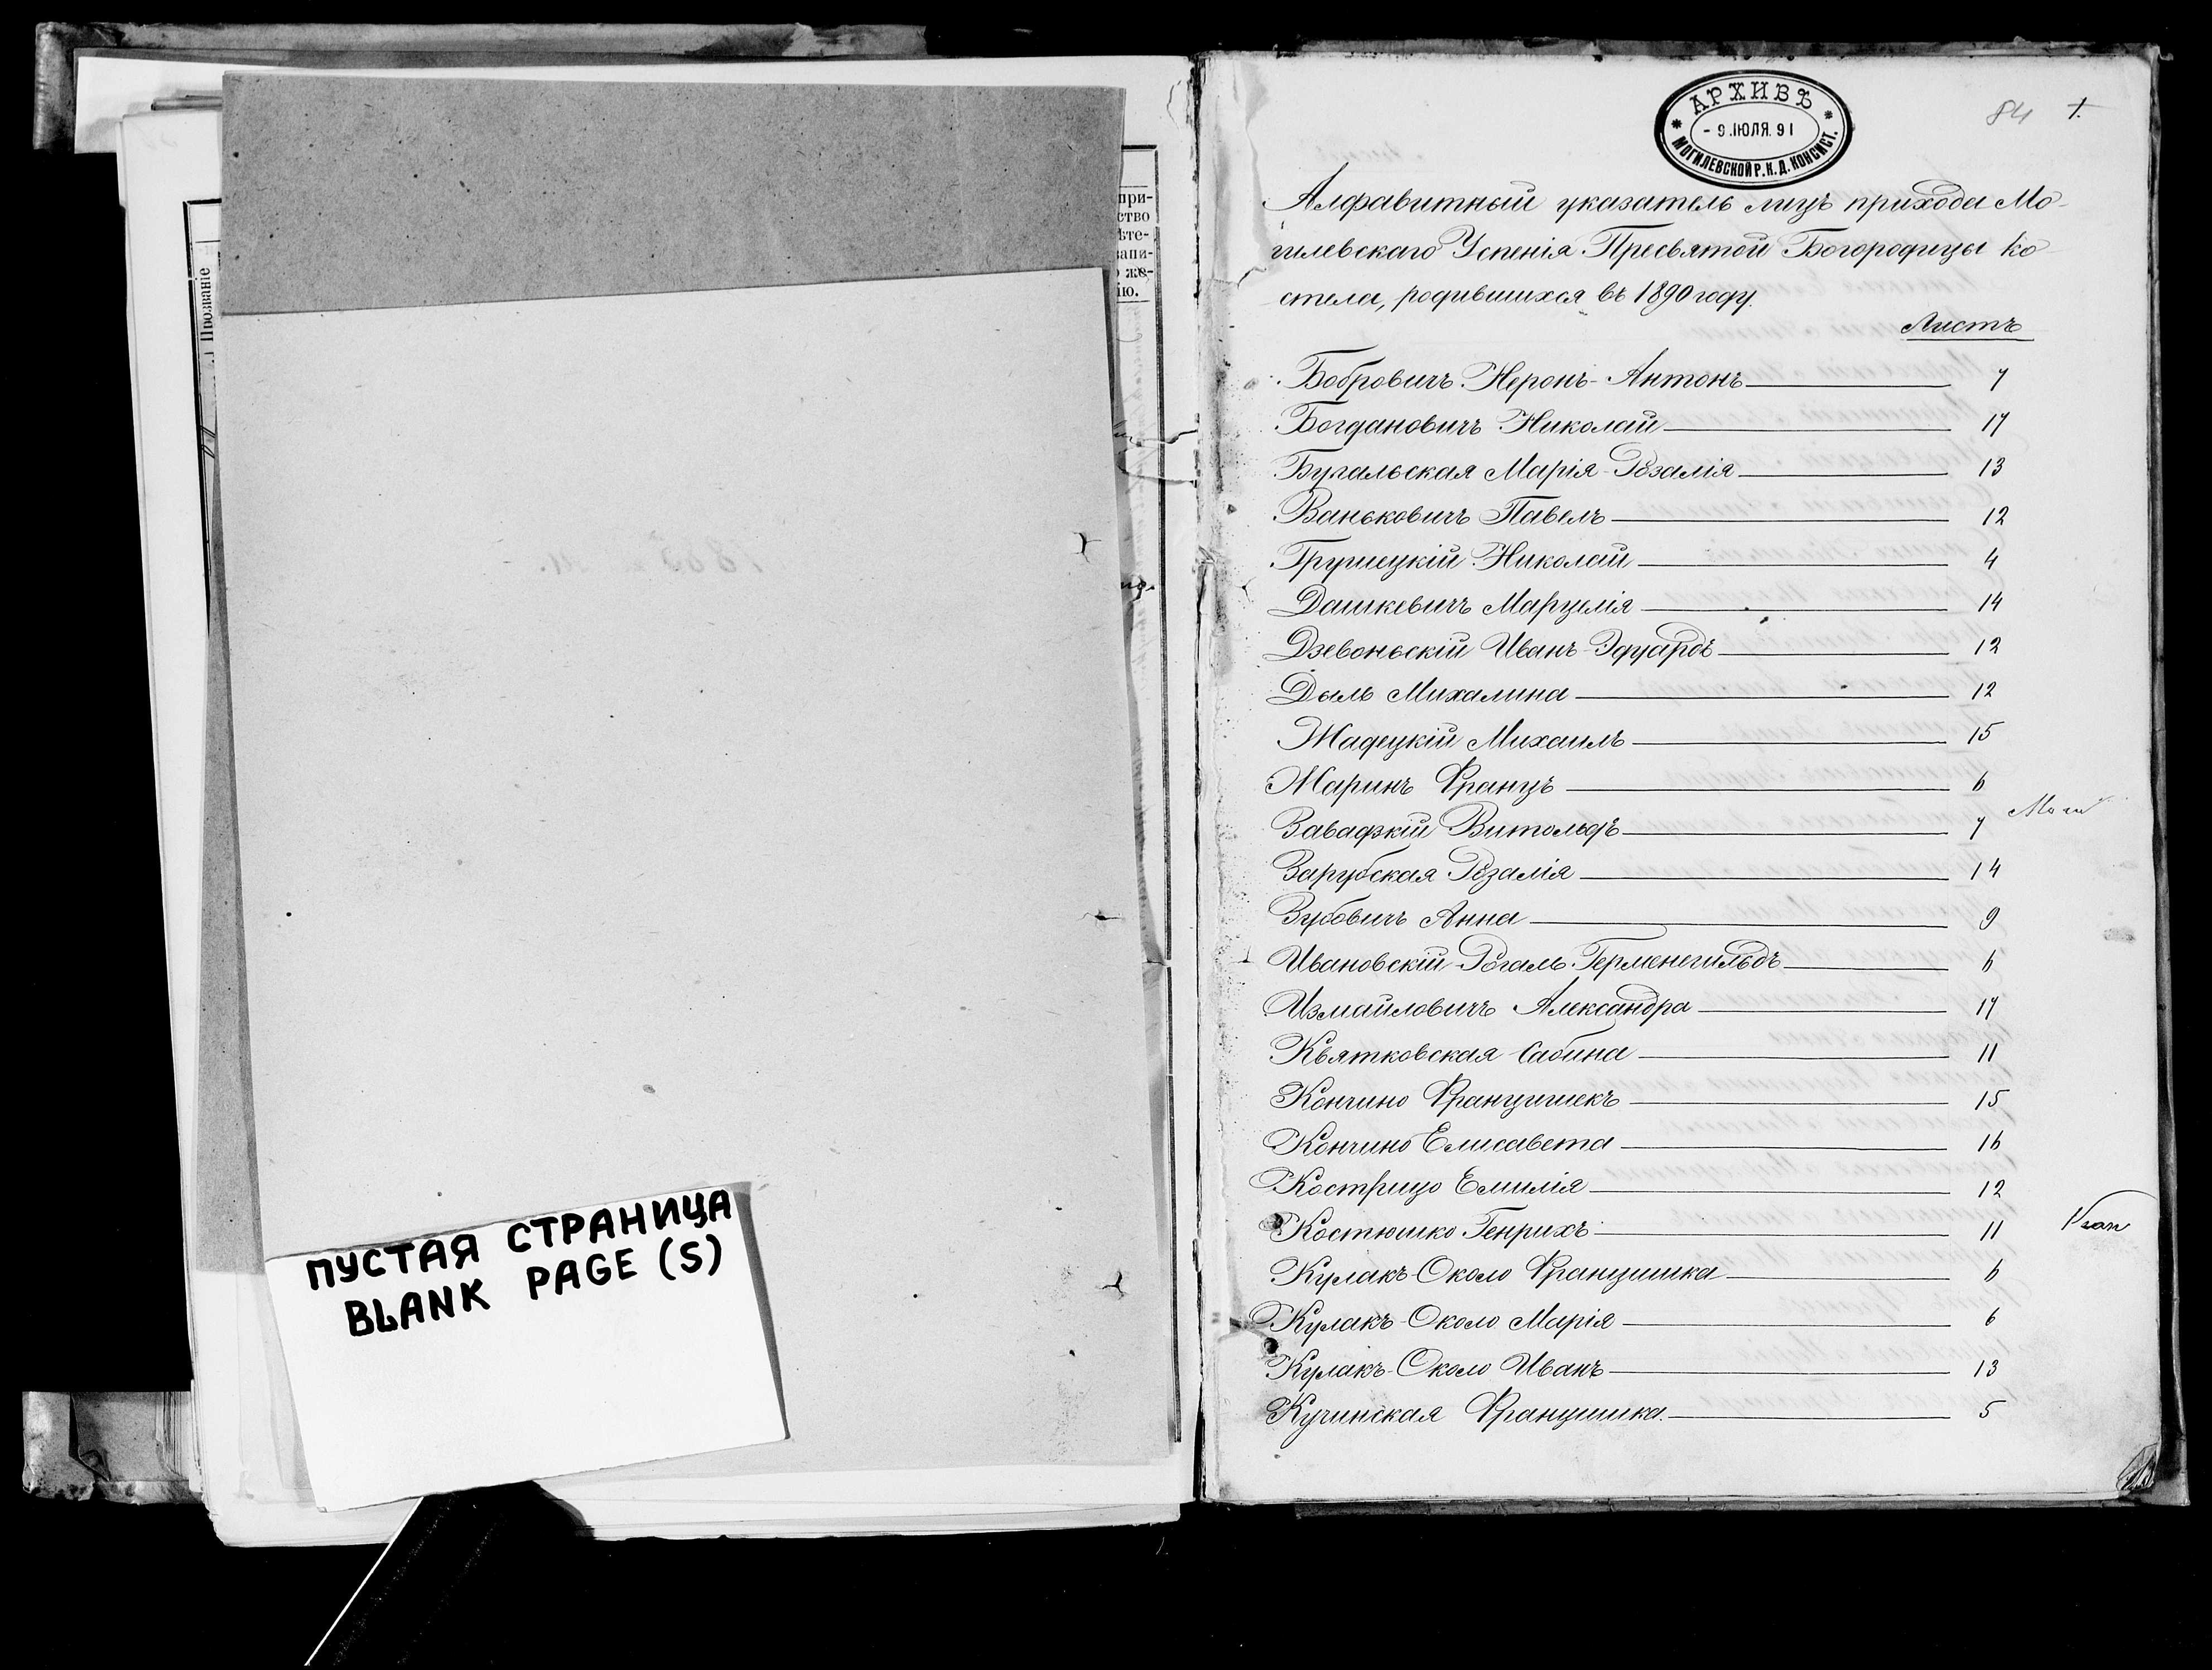 Прозваніе
при-
ство
ѣте-
запи-
о же-
ію.
ПУСТАЯ СТРАНИЦА
BLANK PAGE (S)
АРХИВЪ
- 9. ІЮЛЯ. 91
МОГИЛЕВСКОЙ Р. К. Д. КОНСИСТ.
84 1.
Алфавитный указатель лицъ прихода Мо-
гилевскаго Успенія Пресвятой Богородицы ко-
стела, родившихся въ 1890 году.
Листъ
Бобровичъ Неронъ-Антонъ 7
Богдановичъ Николай 17
Бугальская Марія-Розалія 13
Ваньковичъ Павелъ 12
Грушецкій Николай 4
Дашкевичъ Марцелія 14
Дзевоньскій Иванъ-Эдуардъ 12
Дыль Михалина 12
Жадецкій Михаилъ 15
Жаринъ Францъ 6
Завадзкій Витольдъ 7
Зарубская Розалія 14
Зубовичъ Анна 9
Ивановскій-Рогаль Герменегильдъ 6
Измайловичъ Александра 17
Квятковская Сабина 11
Кончино Францишекъ 15
Кончино Елисавета 16
Кострицо Емилія 12
Костюшко Генрихъ 11
Кулакъ-Около Францишка 6
Кулакъ-Около Марія 6
Кулакъ-Около Иванъ 13
Кучинская Францишка 5